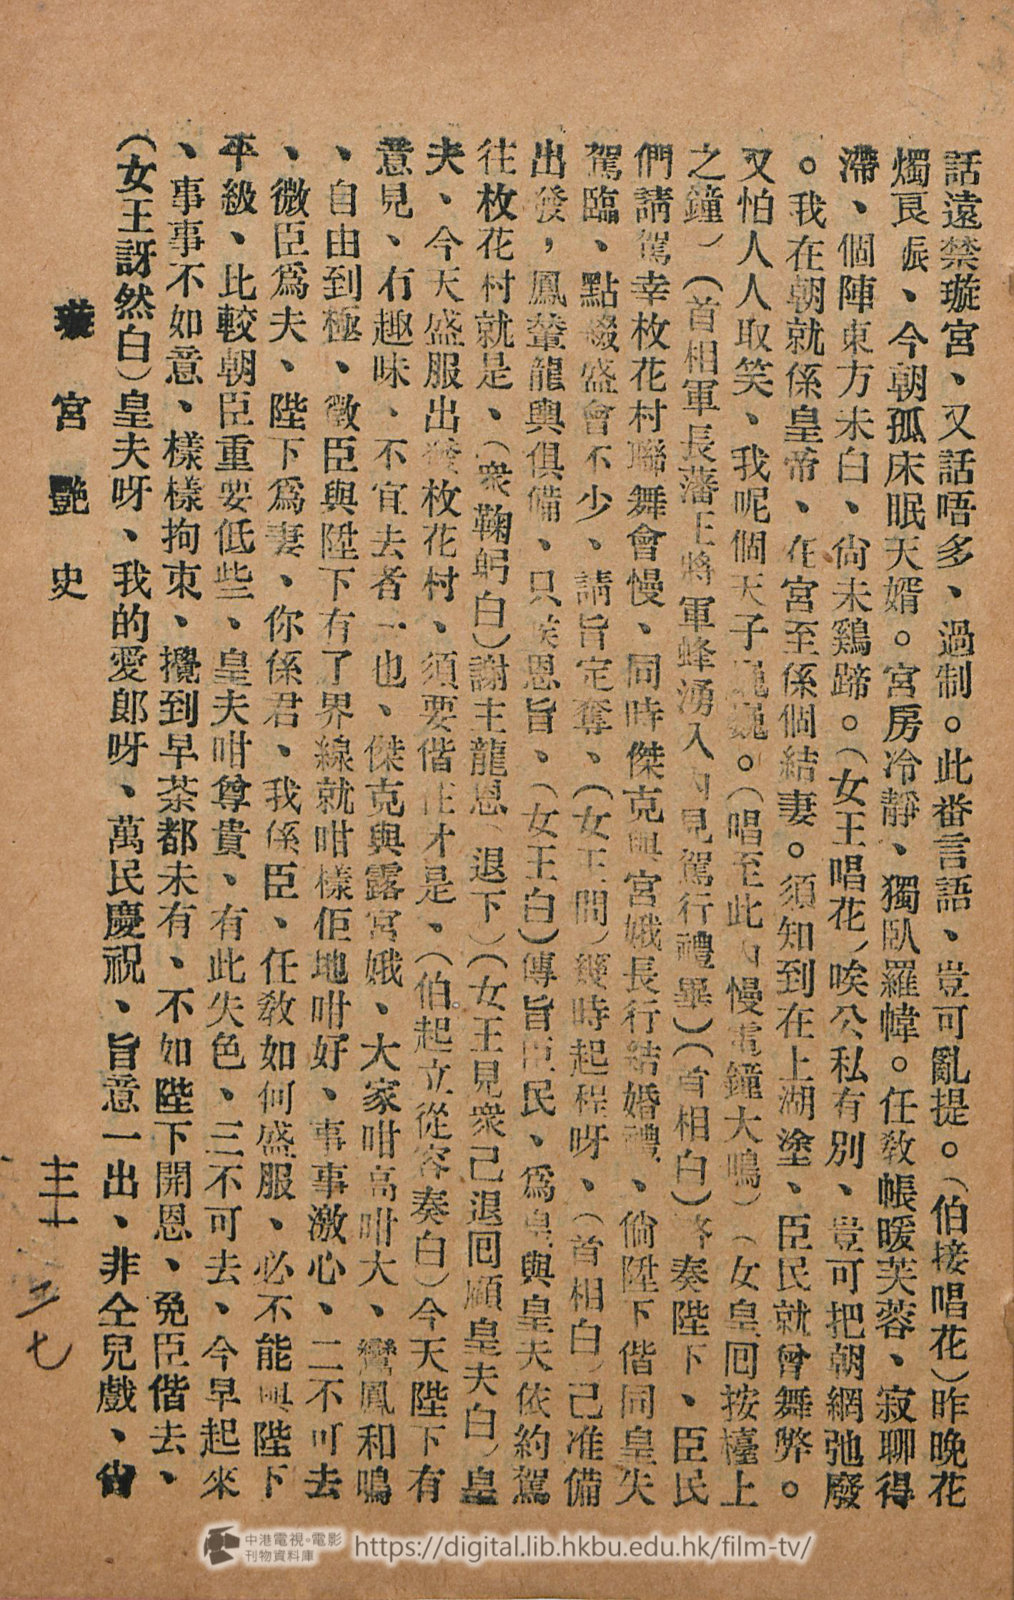 話遠禁璇宮、又話唔多、過制。此番言語、豈可亂提。(伯接唱花)昨晚花
燭良　、今朝孤床眠天婿。宮房冷靜、獨臥羅幃。任教帳暖芙蓉、寂聊得
滯、個陣東方未白、尙未鷄蹄。(女王唱花)唉公私有別、豈可把朝網弛廢
。我在朝就係皇帝、在宮至係個結妻。須知到在上湖塗、臣民就會舞弊。
又怕人人取笑、我呢個天子　巍。(唱至此內慢電鐘大鳴)(女皇回按檯上
之鐘)(首相軍長藩王將軍蜂湧入內見駕行禮畢)(首相白)啓奏陛下、臣民
們請駕幸枚花村聯舞會慢、同時傑克與宮娥長行結婚禮、倘陞下偕同皇失
駕臨、點綴盛會不少、請旨定奪、(女王問)幾時起程呀、(首相白)己准備
出發，鳳輦龍輿俱備、只候恩旨、(女王白)傳旨臣民、爲皇與皇天依約駕
往枚花村就是、(衆鞠躬白)謝主龍恩(退下)(女王見衆己退囘顧皇夫白)皇
夫、今天盛服出發枚花村、須要偕往才是、(伯起立從容奏白)今天陛下有
意見、冇趣味、不宜去者一也、傑克與露宮娥、大家咁高咁大、鸞鳳和鳴
、自由到極、微臣與陞下有了界線就咁樣佢地咁好、事事激心、二不可去
、微臣爲夫、陛下爲妻、你係君、我係臣、任敎如何盛服、必不能與陛下
平級、比較朝臣重要低些、皇夫咁尊貴、有此失色、三不可去、今早起來
、事事不如意、樣樣拘束、攪到早茶都未有、不如陛下開恩、免臣偕去、
(女王訝然白)皇夫呀、我的愛郎呀、萬民慶祝、旨意一出、非仝兒戲、
璇宮艷史
三七
中港電視·電影
刊物資料庫
https://digital.lib.hkbu.edu.hk/film-tv/